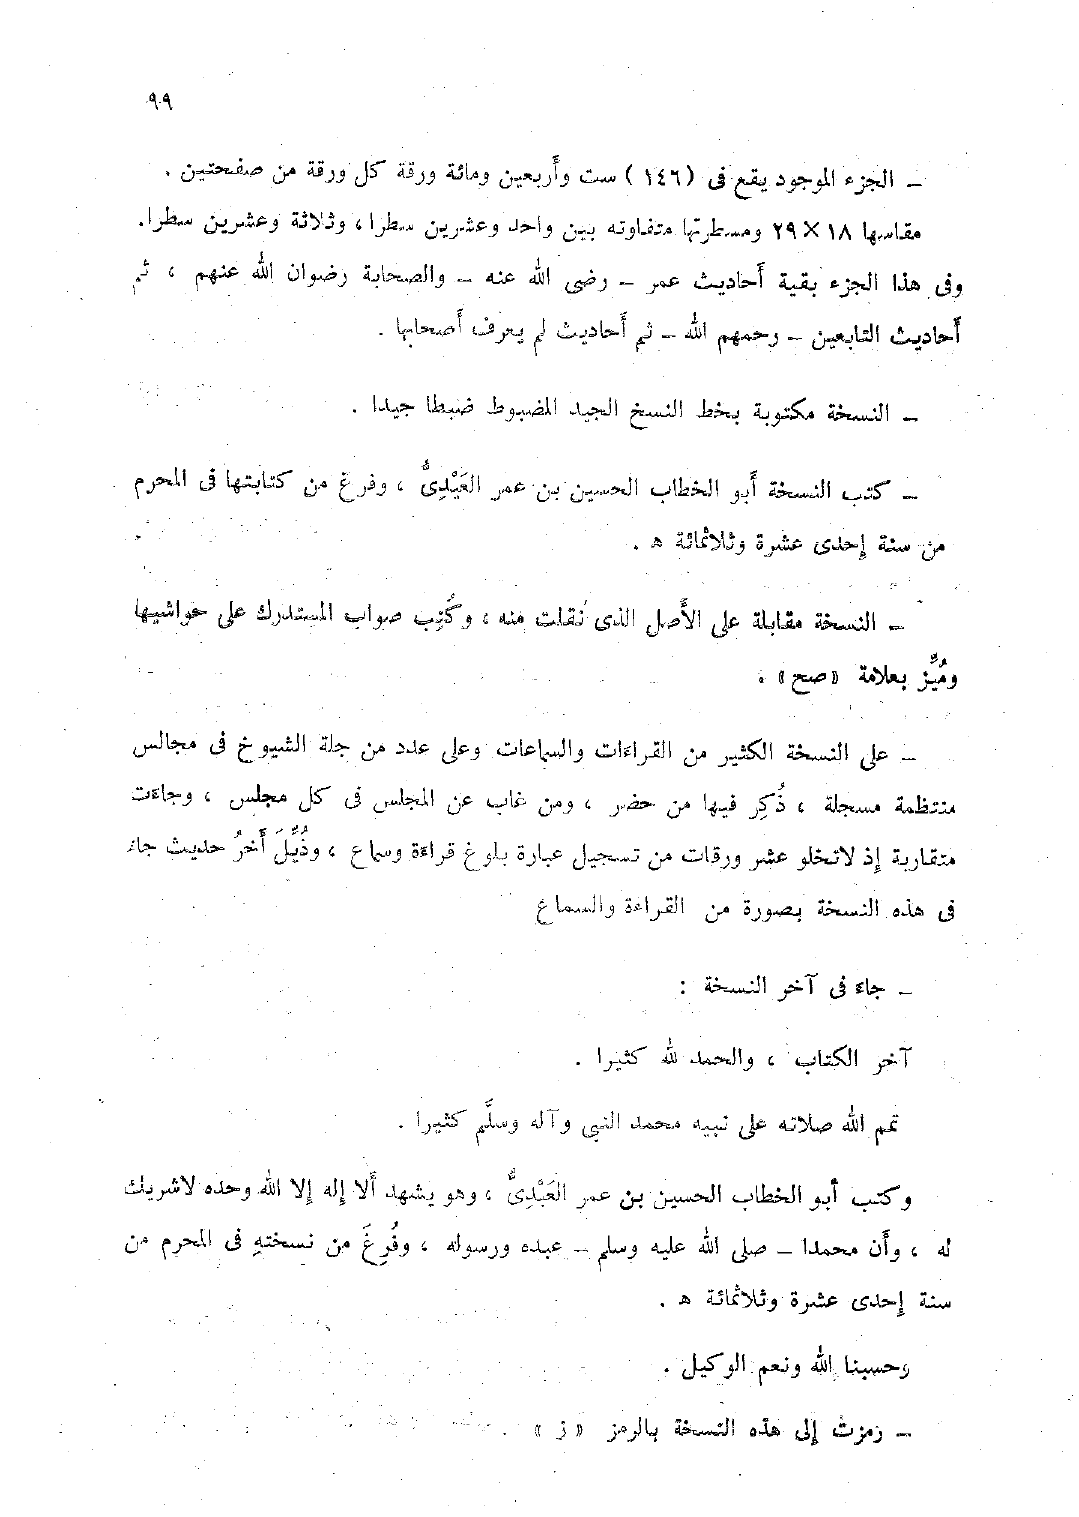 ٩٩
ـ الجزء الموجود يقع فى (١٤٦) ست وأَربعين ومائة ورقة كل ورقة من صفحتين .
مقاسها ١٨×٢٩ ومسطرتها متفاوته بين واحد وعشرين سطرا ، وثلاثة وعشرين سطرا.
وفى هذا الجزء بقية أَحاديث عمر ـ رضى الله عنه ـ والصحابة رضوان الله عنهم ، ثم
أَحاديث التابعين ـ رحمهم الله ـ ثم أَحاديث لم يعرف أَصحابها .
ـ النسخة مكتوبة بخط النسخ الجيد المضبوط ضبطا جيدا .
ـ كتب النسخة أَبو الخطاب الحسين بن عمر العَبْدِىُّ ، وفرغ من كتابتها فى المحرم
من سنة إِحدى عشرة وثلاثمائة هـ .
ـ النسخة مقابلة على الأَصل الذى نُقلت منه ، وكُتِب صواب المستدرك على حواشيها
ومُيِّز بعلامة «صح» .
ـ على النسخة الكثير من القراءات والسماعات وعلى عدد من جلة الشيوخ فى مجالس
منتظمة مسجلة ، ذُكِر فيها من حضر ، ومن غاب عن المجلس فى كل مجلس ، وجاءت
متقاربة إذ لاتخلو عشر ورقات من تسجيل عبارة بلوغ قراءة وسماع ، وذُيِّلَ أَخرُ حديث جاء
فى هذه النسخة بصورة من القراءة والسماع
ـ جاء فى آخر النسخة :
آخر الكتاب ، والحمد لله كثيرا .
تمم الله صلاته على نبيه محمد النبى وآله وسلَّم كثيرا .
وكتب أبو الخطاب الحسين بن عمر العَبْدِىُّ ، وهو يشهد أَلا إله إلا الله وحده لاشريك
له ، وأَن محمدا ـ صلى الله عليه وسلم ـ عبده ورسوله ، وفُرِغَ من نسختهِ فى المحرم من
سنة إِحدى عشرة وثلاثمائة هـ .
وحسبنا الله ونعم الوكيل .
ـ رمزت إلى هذه النسخة بالرمز «ز» .